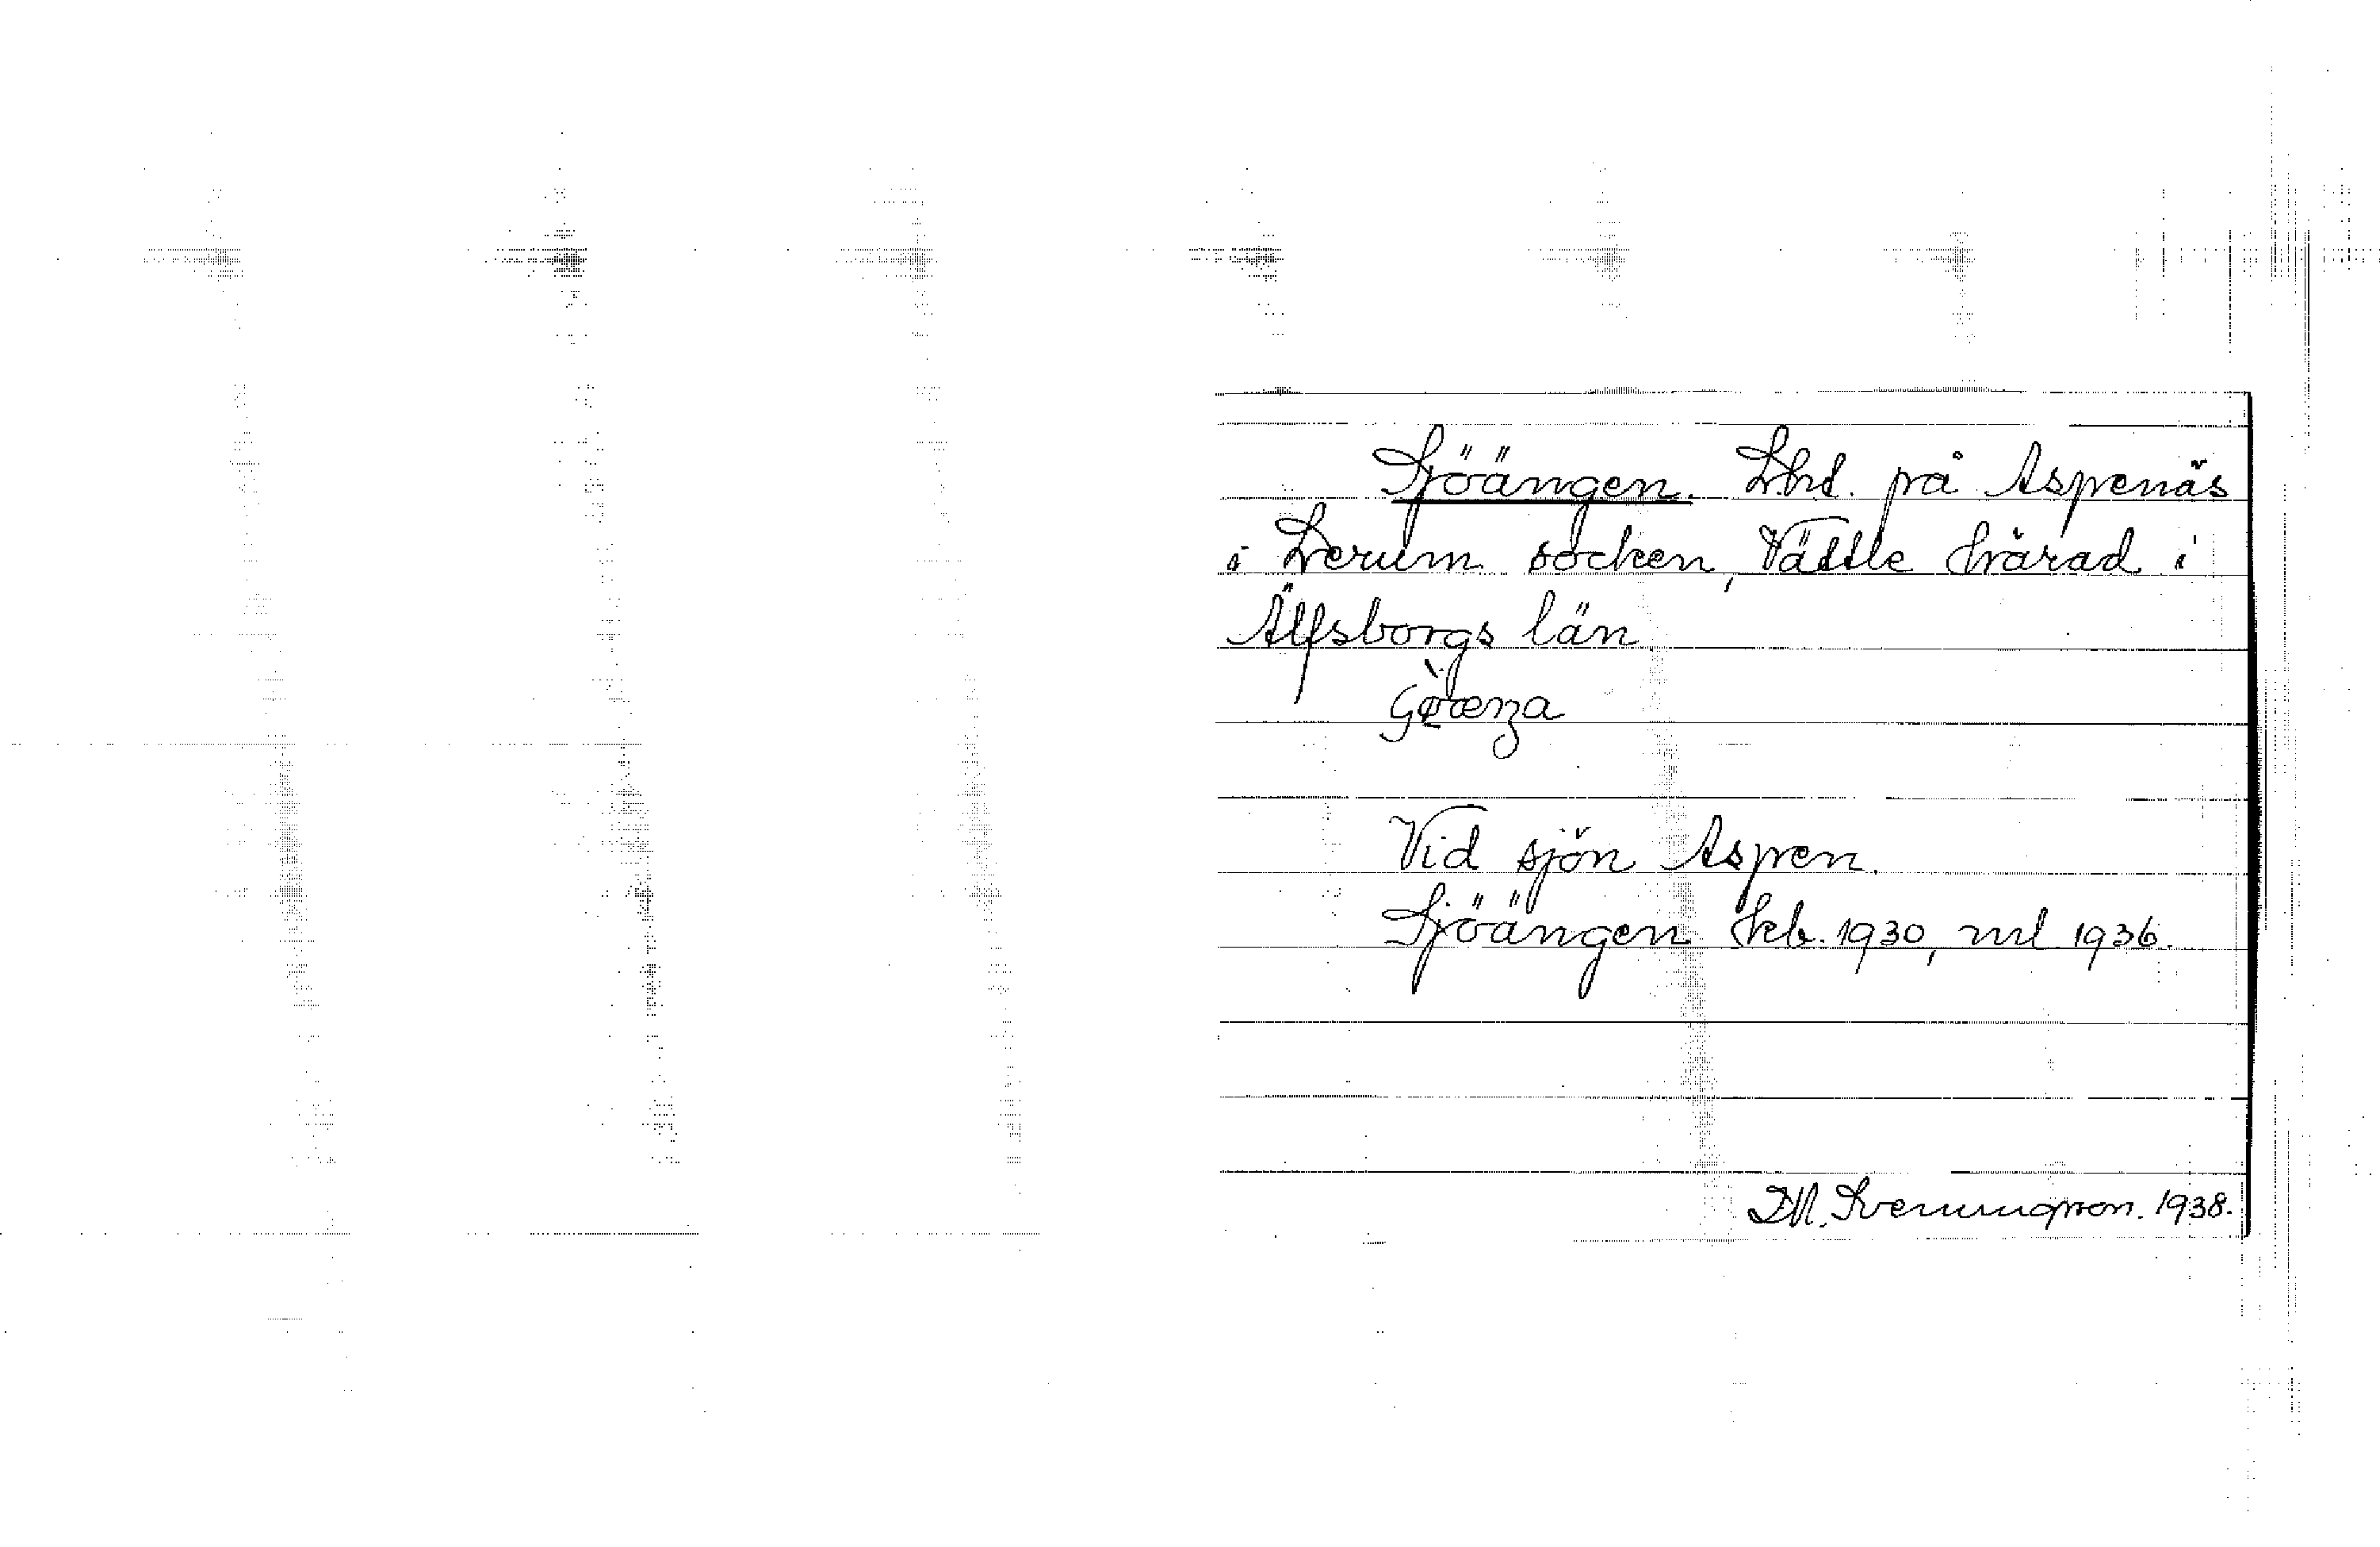 Sjöängen. Lhd. på Aspenäs
i Lerum socken, Vättle härad i
Älfsborgs län
Vid sjön Aspen.
Sjöängen hfb. 1930, ml 1936.
D.M. Svenungsson. 1938.